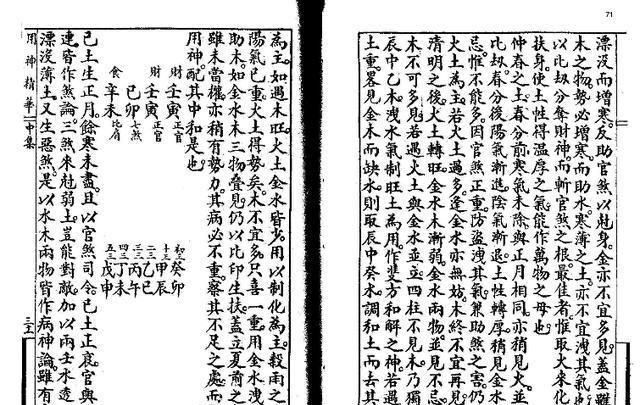 71
漂沒而增寒反助官煞以尅身金亦不宜多見蓋金雖
木之物勢必增寒而助水寒薄之土亦不宜洩其氣也
以比刼分奪財神而斬官煞之根最佳者惟取火來化
扶身使土性得温厚之氣能作萬物之母也
仲春之土春分前寒氣未除與正月相同亦稍見火並
比刼春分後陽氣漸進陰氣漸退土性轉厚稍見金水
忌惟不能多因官煞正重防盜洩其氣兼助煞之害仍
火土為主若火土過多逢金水亦無妨木終不宜再見
清明之後火土轉旺金水木漸弱金水兩物並見不忌
木不可多見若遇火土與金水並立四柱不見木乃獨
辰中乙木洩水氣制旺土為用作雙方和解之神若遇
土重畧見金木而缺水則取辰中癸水調和土而去其
為主如遇木旺火土金水皆少用以制化為主穀雨之
陽氣已重火土得勢矣木不宜多只喜一重用金水洩
助木如金水木三物疊見仍以比印生扶蓋立夏前之
雖未當權亦稍有勢力其病必不重察其不足之處而
用神配其中和是也
財 壬寅 正官
財 壬寅 正官
己卯 七煞
食 辛未 比肩
初三 癸卯
十三 甲辰
二三 乙巳
三三 丙午
四三 丁未
五三 戊申
己土生正月餘寒未盡且以官煞司令己土正哀官與
連皆作煞論三煞來尅弱土豈能對敵加以兩壬水透
漂沒薄土又生惡煞是以水木兩物皆作病神論雖有
用神精華 中集
三一